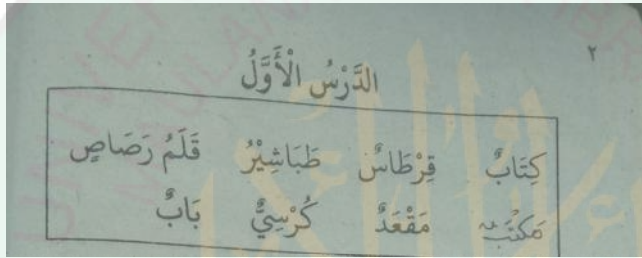 ٢
الدَّرْسُ الْأَوَّلُ
كِتَابٌ قِرْطَاسٌ طَبَاشِيْرُ قَلَمُ رَصَاصٍ
مَكْتَبٌ مَقْعَدٌ كُرْسِيٌّ بَابٌ